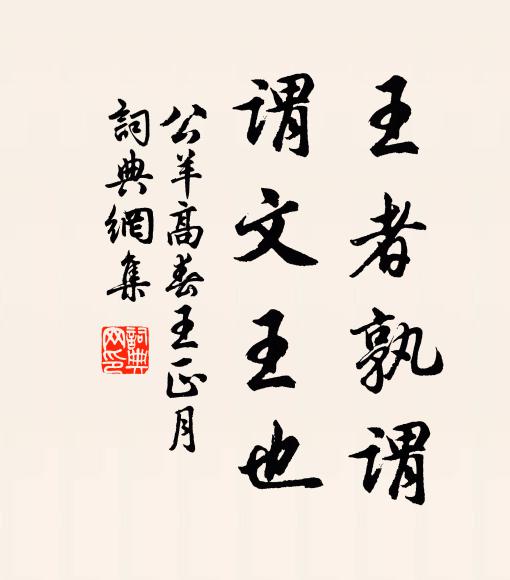 王者孰謂
謂文王也
公羊高春王正月
詞典網集
詞典
网印